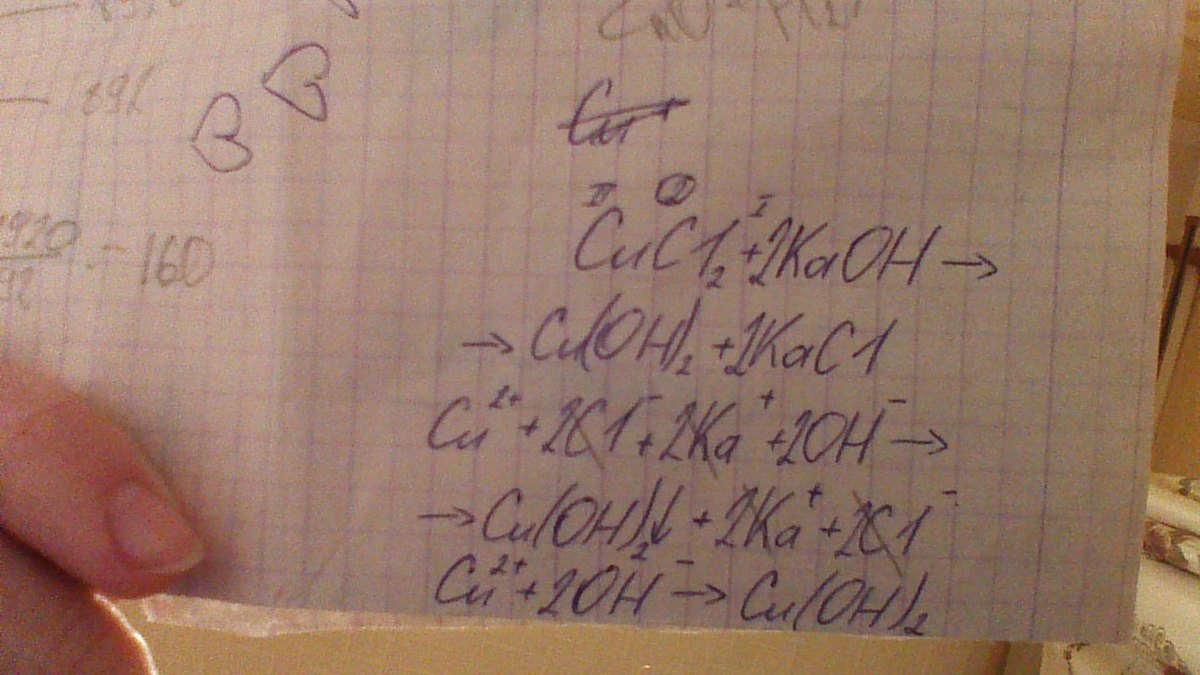 89%
1920
92
- 160
CuCl₂ + 2KaOH →
→ Cu(OH)₂ + 2KaCl
Cu²⁺ + 2Cl⁻ + 2Ka⁺ + 2OH⁻ →
→ Cu(OH)₂↓ + 2Ka⁺ + 2Cl⁻
Cu²⁺ + 2OH⁻ → Cu(OH)₂